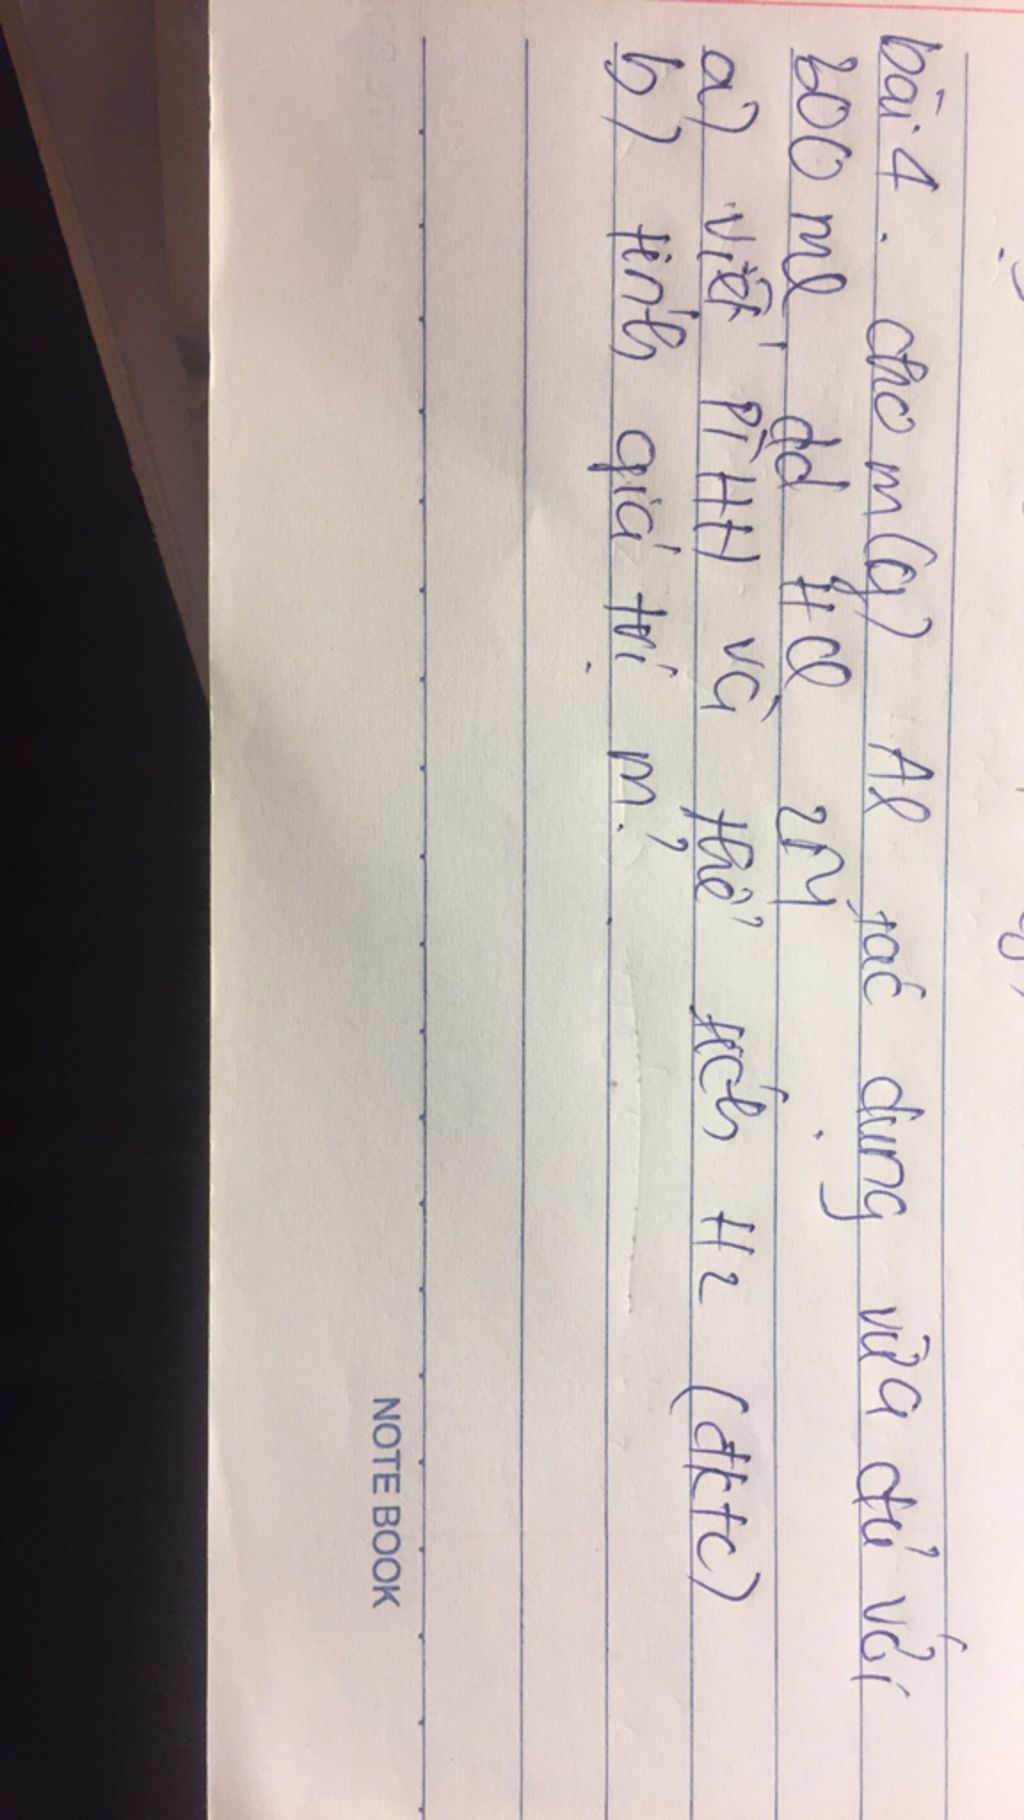 bài 4. cho m(g) Al tác dụng vừa đủ với
200 ml dd HCl 2M
a) viết PTHH và thể tích H2 (đktc)
b) tính giá trị m?
NOTE BOOK